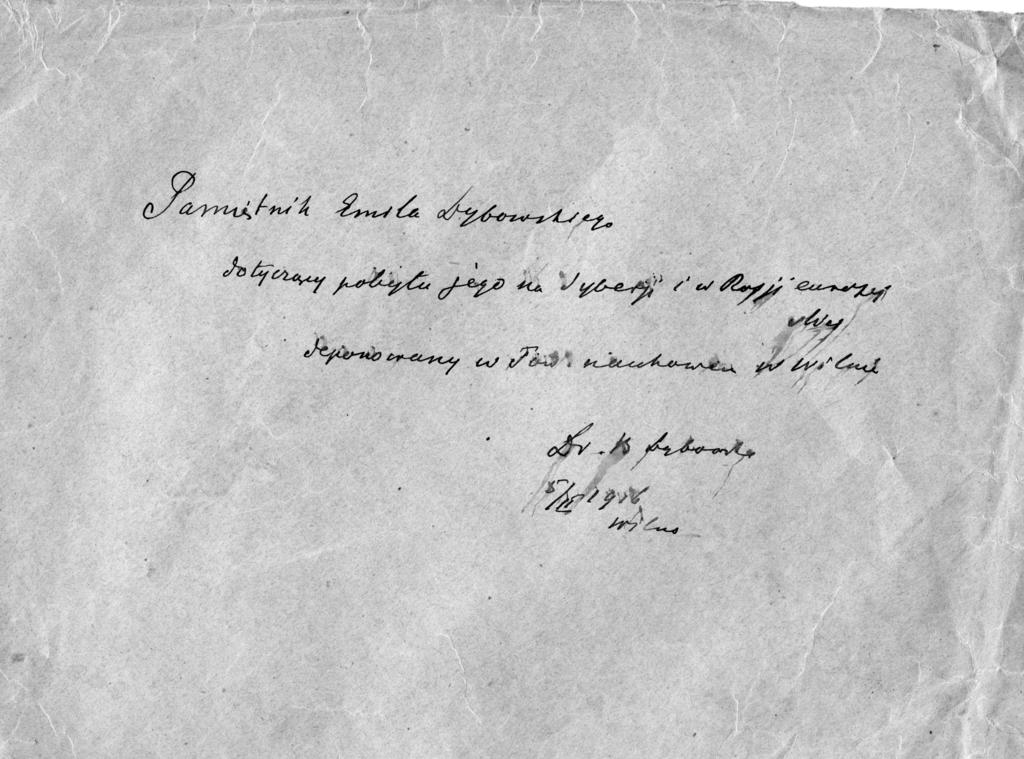 Pamiętnik Emila Dybowskiego
dotyczący pobytu jego na Syberji i w Rosji europej
skiej
deponowany w Tow. naukowem w Wilnie
Dr. B Dybowski
5/XI 1916
Wilno